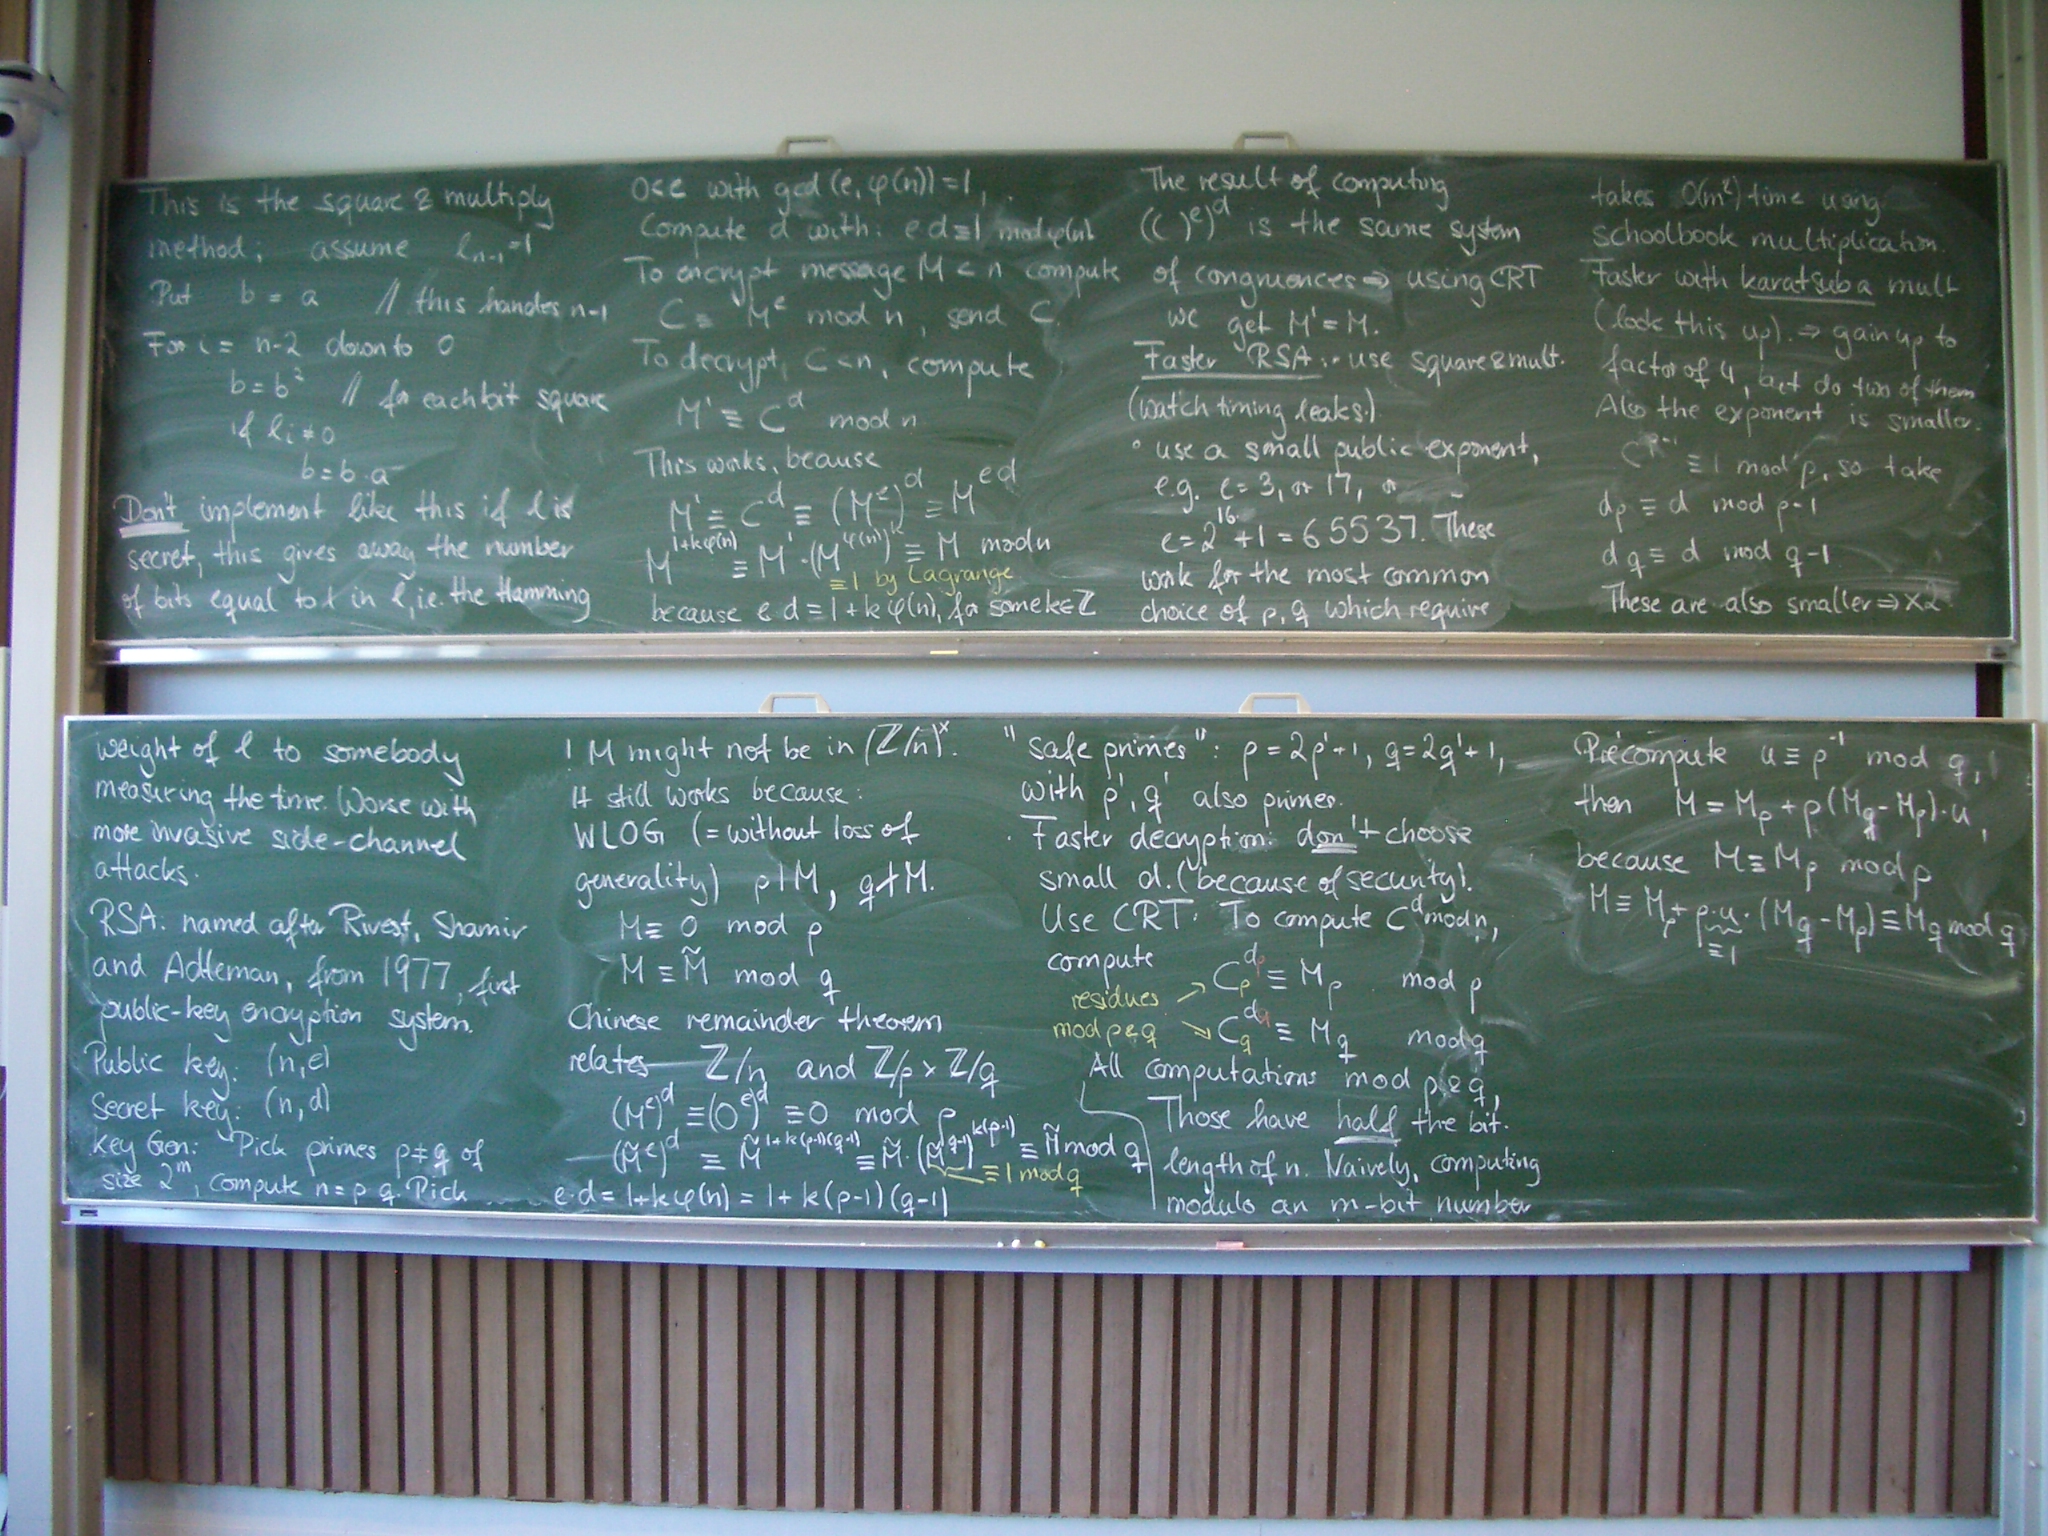 This is the square & multiply
method; assume l_{n-1}=1
Put b = a // this handles n-1
For i = n-2 down to 0
b = b² // for each bit square
if l_i ≠ 0
b = b·a
Don't implement like this if l is
secret, this gives away the number
of bits equal to 1 in l, i.e. the Hamming
weight of l to somebody
measuring the time. Worse with
more invasive side-channel
attacks.
RSA: named after Rivest, Shamir
and Adleman, from 1977, first
public-key encryption system.
Public key: (n,e)
Secret key: (n,d)
Key Gen: Pick primes p≠q of
size 2^m, compute n=p q. Pick
0<e with gcd(e,φ(n))=1,
Compute d with: ed≡1 mod φ(n).
To encrypt message M<n compute
C ≡ M^e mod n, send C.
To decrypt, C<n, compute
M' ≡ C^d mod n
This works, because
M' ≡ C^d ≡ (M^e)^d ≡ M^{ed}
M^{1+kφ(n)} ≡ M^1·(M^{φ(n)})^k ≡ M mod n
≡1 by Lagrange
because e·d = 1+kφ(n), for some k∈ℤ
! M might not be in (ℤ/n)^×.
It still works because:
WLOG (=without loss of
generality) p|M, q∤M.
M ≡ 0 mod p
M ≡ M̃ mod q
Chinese remainder theorem
relates ℤ/n and ℤ/p × ℤ/q
(M^e)^d ≡ (0^e)^d ≡ 0 mod p
(M̃^e)^d ≡ M̃^{1+k(p-1)(q-1)} ≡ M̃·(M̃^{q-1})^{k(p-1)} ≡ M̃ mod q
≡1 mod q
e·d = 1+kφ(n) = 1+k(p-1)(q-1)
The result of computing
(( )^e)^d is the same system
of congruences ⇒ using CRT
we get M'=M.
Faster RSA: · use square & mult.
(watch timing leaks.)
° use a small public exponent,
e.g. e=3, or 17, or
e=2^{16}+1=65537. These
work for the most common
choice of p,q which require
"safe primes": p=2p'+1, q=2q'+1,
with p', q' also primes.
· Faster decryption: don't choose
small d. (because of security).
Use CRT: To compute C^d mod n,
compute C_p^{d_p} ≡ M_p mod p
residues
mod p & q C_q^{d_q} ≡ M_q mod q
All computations mod p & q,
Those have half the bit-
length of n. Naively, computing
modulo an m-bit number
takes O(m²) time using
schoolbook multiplication.
Faster with karatsuba mult
(look this up). ⇒ gain up to
factor of 4, but do two of them
Also the exponent is smaller.
C^{p-1} ≡ 1 mod p, so take
d_p ≡ d mod p-1
d_q ≡ d mod q-1
These are also smaller ⇒ ×2
Precompute u ≡ p^{-1} mod q,
then M = M_p + p(M_q-M_p)·u,
because M ≡ M_p mod p
M ≡ M_p + p·u·(M_q-M_p) ≡ M_q mod q
≡1